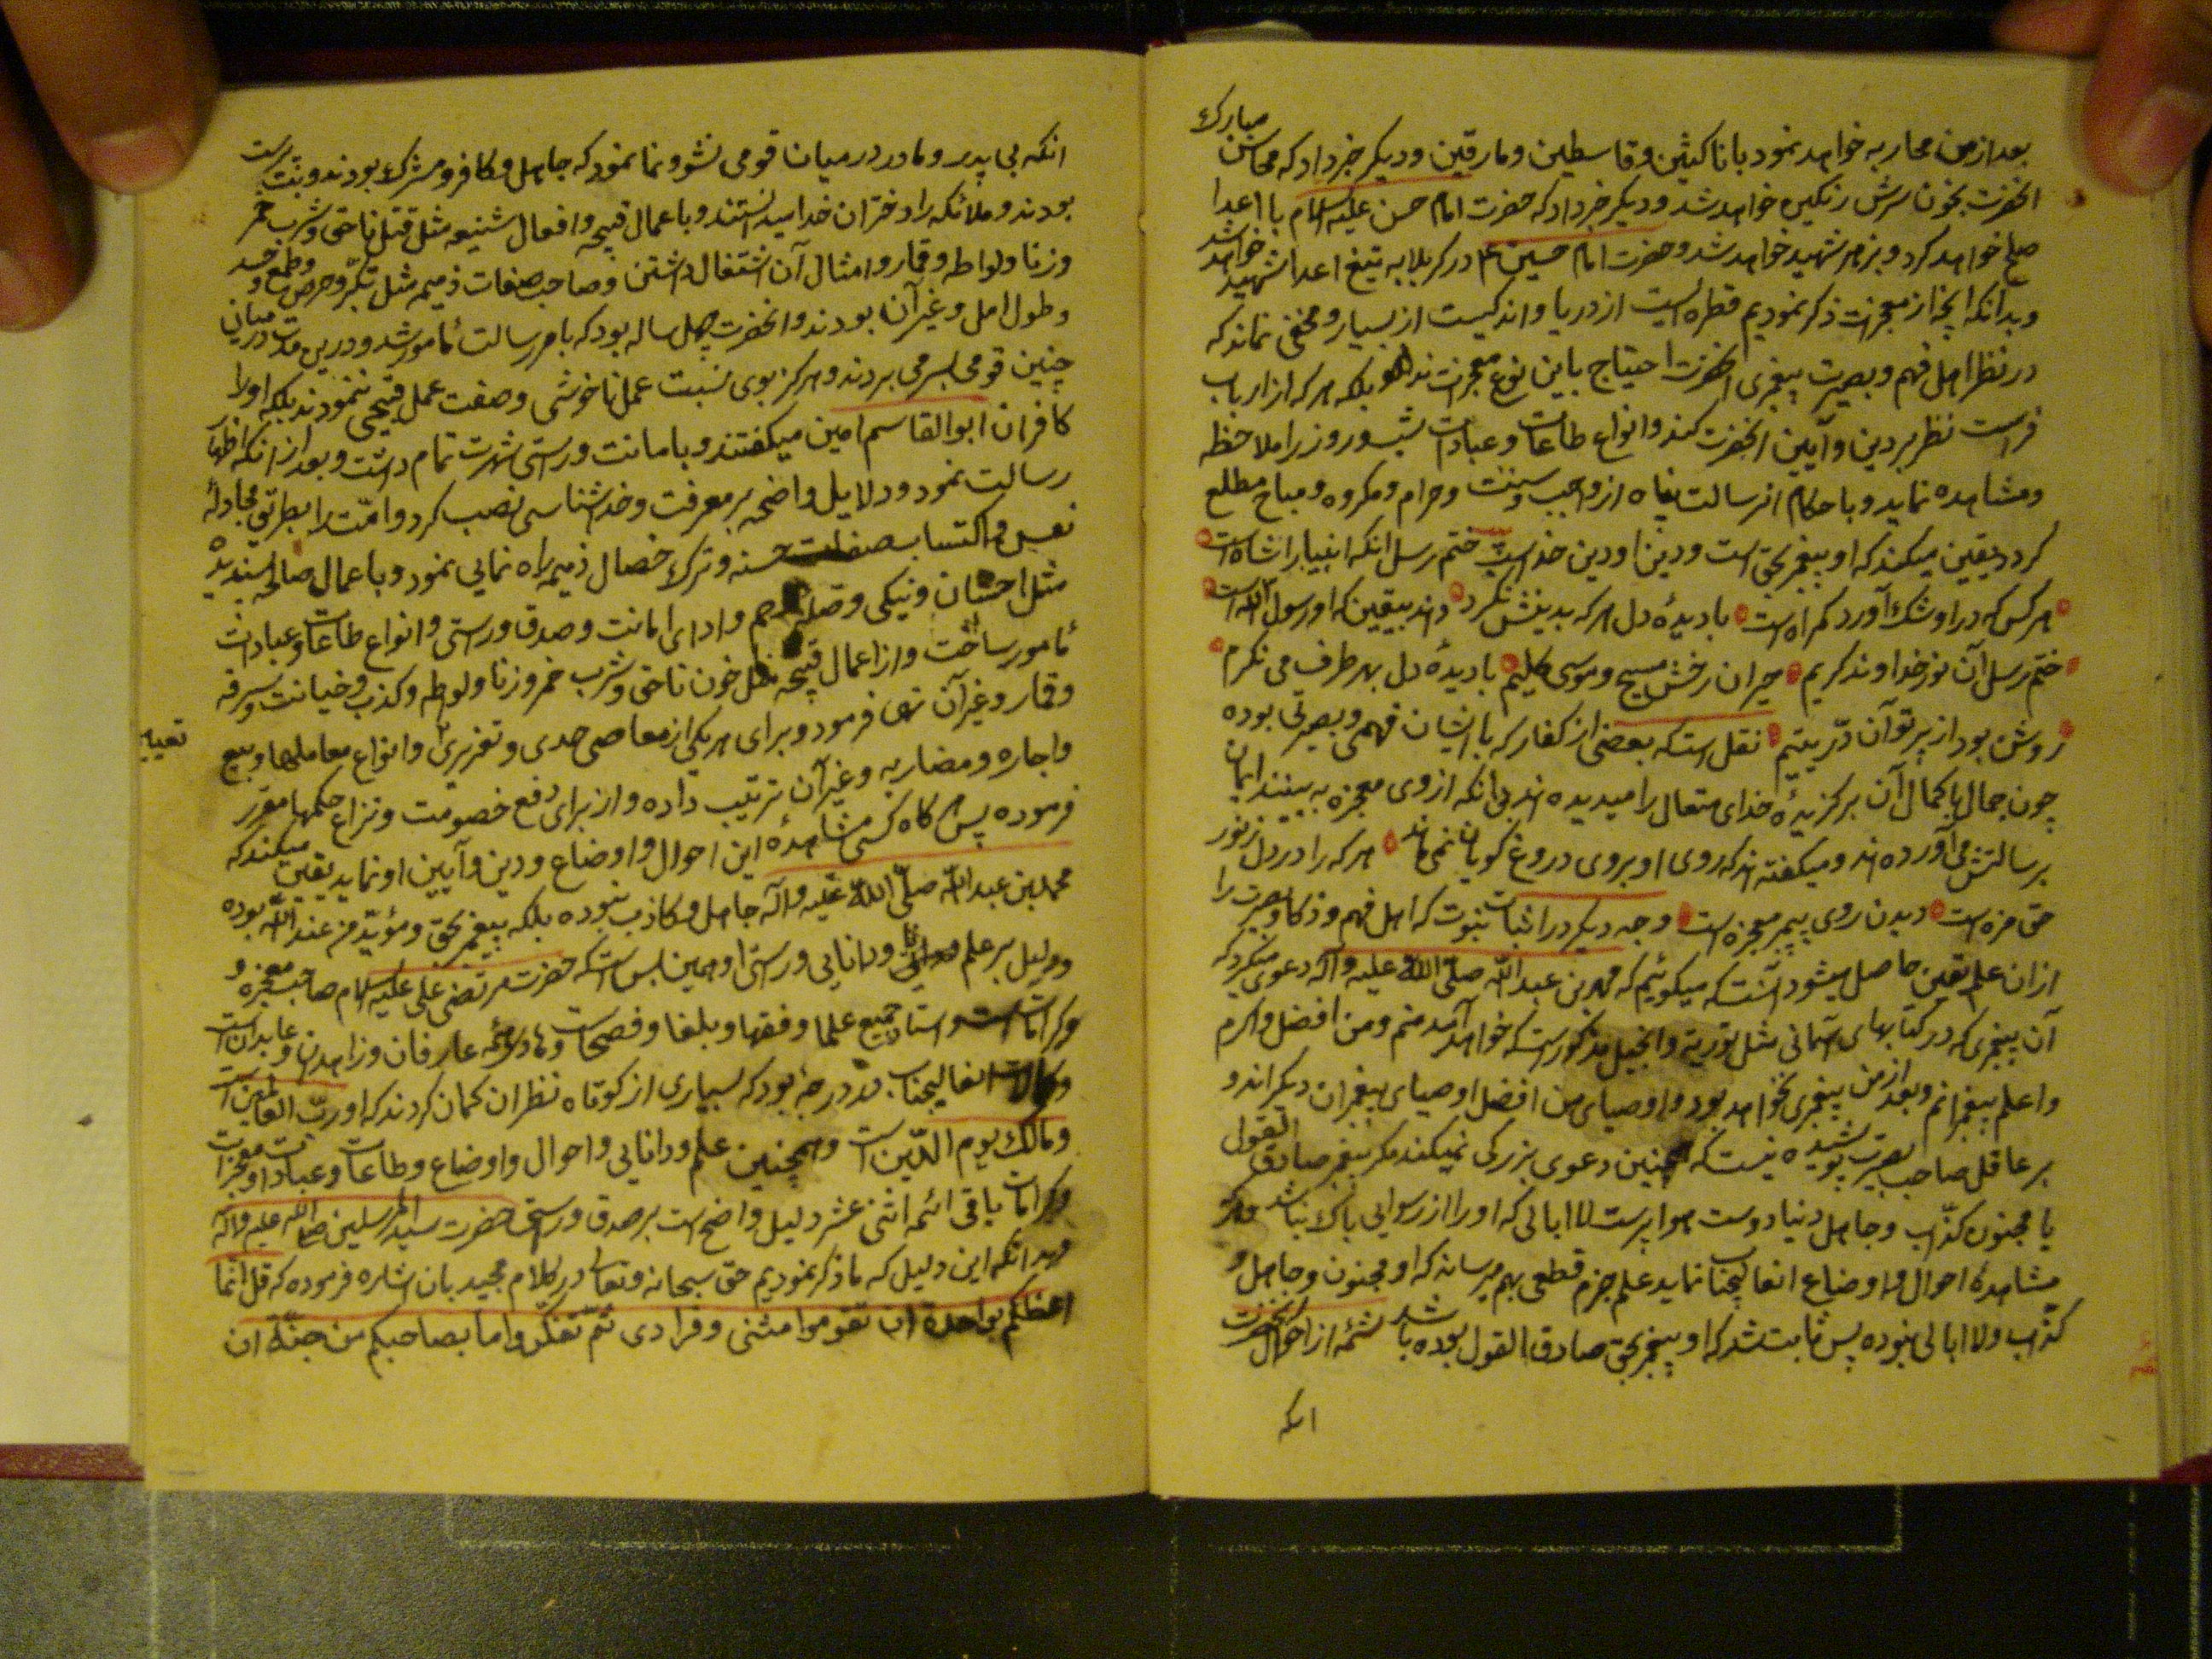 بعد از من محاربه خواهد نمود با ناکثین و قاسطین و مارقین و دیکر خبر داد که محاسن مبارک
انحضرت بخون سرش رنکین خواهد شد و دیکر خبر داد که حضرت امام حسن علیه السلام با اعدا
صلح خواهد کرد و بزهر شهید خواهد شد و حضرت امام حسین ع در کربلا به تیغ اعدا شهید خواهد شد
و بدانکه انچه از معجزات ذکر نمودیم قطره ایست از دریا و اندکیست از بسیار و مخفی نماند که
در نظر اهل فهم و بصیرت پیغمبری انحضرت احتیاج باین نوع معجزات ندارد بلکه هر که از ارباب
فراست نظر بر دین و آیین انحضرت کند و انواع طاعات و عبادات شب و روز را ملاحظه
و مشاهده نماید و باحکام انرسالت پناه از واجب و سنت و حرام و مکروه و مباح مطلع
کردد یقین میکند که او پیغمبر بحق است و دین او دین خداست ختم رسل انکه انبیا را شاه است
هر کس که در او شک آورد کمراه است با دیدۀ دل هر که بدینش نکرد داند بیقین که او رسول الله است
ختم رسل آن نور خداوند کریم حیران رخش مسیح و موسی کلیم با دیدۀ دل بهر طرف می نکرم
روشن بود از پرتو آن درّ یتیم نقل است که بعضی از کفار که با ایشان فهمی و بصیرتی بوده
چون جمال با کمال آن برکزیدۀ خدای متعال را میدیده اند بی انکه از وی معجزه به بینند ایمان
برسالتش می آورده اند و میکفته اند که روی او بروی دروغ کویان نمی ماند هر که را در دل ز نور
حق مزه است دیدن روی پیمبر معجزه است وجه دیکر در اثبات نبوت که اهل فهم و ذکا و بصیرت را
ازان علم یقین حاصل میشود آنست که میکوئیم که محمد بن عبد الله صلّی الله علیه و آله دعوی میکرد که
آن پیغمبری که در کتابهای آسمانی مثل توریة و انجیل مذکور است که خواهد آمد منم و من افضل و اکرم
و اعلم پیغمبرانم و بعد از من پیغمبری نخواهد بود و اوصیای من افضل اوصیای پیغمبران دیکر اند و
بر عاقل صاحب بصیرت پوشیده نیست که اینچنین دعوی بزرکی نمیکند مکر پیغمبر صادق القول
یا مجنون کذّاب و جاهل دنیا دوست هوا پرست لا ابالی که او را از رسوایی باک نباشد و هر که
مشاهدۀ احوال و اوضاع انعالیجناب نماید علم جزم قطعی بهم میرساند که او مجنون و جاهل و
کذّاب و لا ابالی نبوده پس ثابت شد که او پیغمبر بحق صادق القول بوده باشد شمۀ از احوال انحضرت
انکه
انکه بی پدر و مادر در میان قومی نشو و نما نمود که جاهل و کافر و مشرک بودند و بت پرست
بودند و ملائکه را دختران خدا میدانستند و باعمال قبیحه و افعال شنیعه مثل قتل ناحق و شرب خمر
و زنا و لواطه و قمار و امثال آن اشتغال داشتند و صاحب صفات ذمیمه مثل تکبّر و حرص و طمع و حسد
و طول امل و غیر آن بودند و انحضرت چهل ساله بود که بامر رسالت مأمور شد و درین مدت در میان
چنین قومی بسر می بردند و هرکز بوی نسبت عمل ناخوشی و صفت عمل قبیحی ننمودند بلکه او را
کافران ابو القاسم امین میکفتند و بامانت و راستی شهرت تمام داشت و بعد از انکه اظهار
رسالت نمود و دلایل واضحه بر معرفت و خدا شناسی نصب کرد و امّت را بطریق مجادلۀ
نفس و اکتساب صفات حسنه و ترک خصال ذمیمه راه نمایی نمود و باعمال صالحۀ پسندیدۀ
مثل احسان و نیکی و صله رحم و ادای امانت و صدق و راستی و انواع طاعات و عبادات
مأمور ساخت و از اعمال قبیحه مثل خون ناحق و شرب خمر و زنا و لواطه و کذب و خیانت و سرقه
و قمار و غیر آن نهی فرمود و برای هر یکی از معاصی حدی و تعزیری و انواع معاملها و بیع
و اجاره و مضاربه و غیر آن ترتیب داده و از برای دفع خصومت و نزاع حکمها مقرر
فرموده پس هر کاه کسی مشاهدۀ این احوال و اوضاع و دین و آیین او نماید یقین میکند که
محمد بن عبد الله صلّی الله علیه و آله جاهل و کاذب نبوده بلکه پیغمبر بحق و مؤیّد من عند الله بوده
و دلیل بر علم و دانایی و راستی او همین بس است که حضرت مرتضی علی علیه السلام صاحب معجزه و
کرامات است و استاد جمیع علما و فقها و بلغا و فصحا است و عارفان و زاهدان و عابدان است
و کمالات انعالیجناب در درجۀ بود که بسیاری از کوتاه نظران کمان کردند که او ربّ العالمین است
و مالک یوم الدّین است و همچنین علم و دانایی و احوال و اوضاع و طاعات و عبادات و معجزات
و کرامات باقی ائمه اثنی عشر دلیل واضح است بر صدق و راستی حضرت سید المرسلین صلّی الله علیه و آله
و بدانکه این دلیل که ما ذکر نمودیم حق سبحانه و تعالی در کلام مجید بان اشاره فرموده که قل انّما
اعظکم بواحدة ان تقوموا مثنی و فرادی ثمّ تتفکّروا ما بصاحبکم من جنّة ان